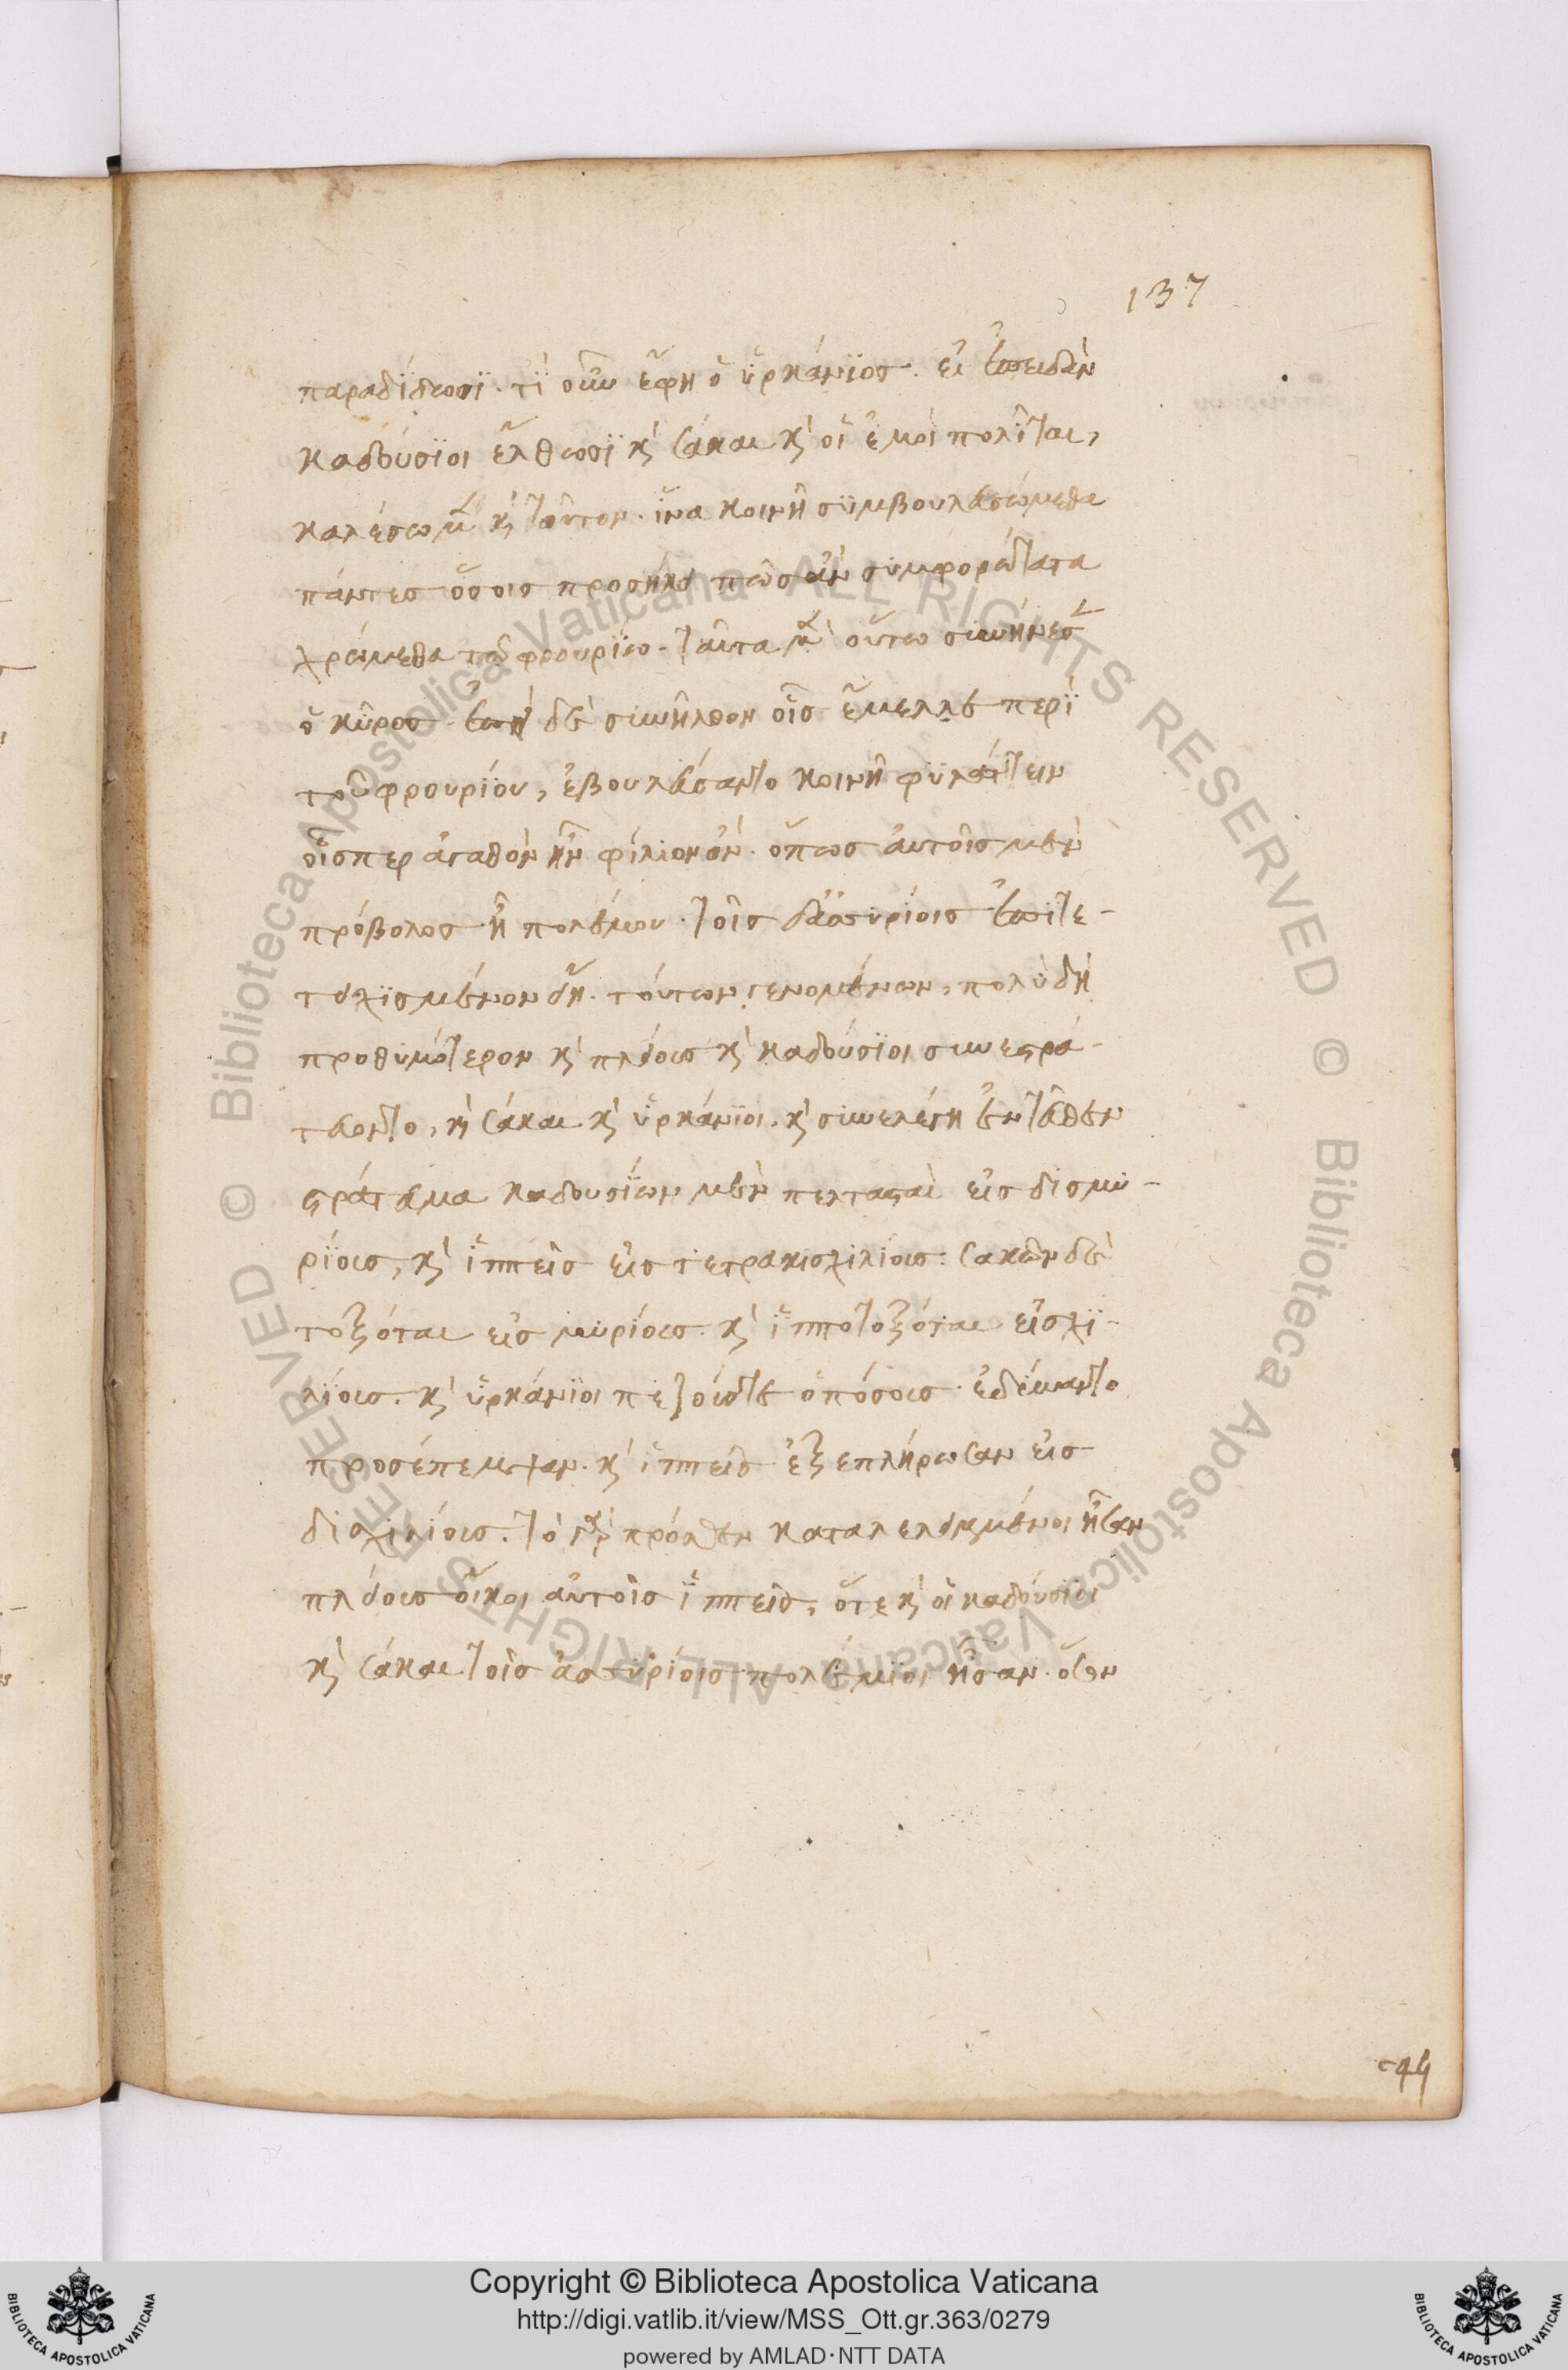 137
παραδίδωσϊ. τί οὖν ἔφη ὁ ὑρκάνϊος. εἰ ἐπειδὰν
καδούσϊοι ἔλθωσϊ κὴ σάκαι κὴ οἱ ἐμοὶ πολῖται,
καλέσωμεν κὴ τοῦτον. ἵνα κοινῆ συμβουλευσώμεθα
πάντες ὅσοις προσήκει πῶς ἂν συμφορώτατα
χρώμεθα τῶ φρουρίω. ταῦτα μὲν οὕτω συνήνεσεν
ὁ κῦρος. ἐπεὶ δὲ συνῆλθον οἷς ἔμελλε περὶ
τοῦ φρουρίου, ἐβουλεύσαντο κοινῆ φυλάττειν
οἷσπερ ἀγαθὸν ἦν φίλιον ὄν. ὅπως αὐτοῖς μὲν
πρόβολος ἦ πολέμου. τοῖς δ' ἀσυρίοις ἐπιτε-
τειχισμένον εἴη. τούτων γενομένων, πολὺ δὴ
προθυμότερον κὴ πλείους κὴ καδούσϊοι συνεστρα-
τεύοντο, κὴ σάκαι κὴ ὑρκάνϊοι. κὴ συνελέγη ἐντεῦθεν
στράτευμα καδουσίων μὲν πελτασταὶ εἰς δισμυ-
ρίους, κὴ ἱππεῖς εἰς τετρακισχιλίους. σακῶν δὲ
τοξόται εἰς μυρίους. κὴ ἱπποτοξόται εἰς χι-
λίους. κὴ ὑρκάνϊοι πεζούς τε ὁπόσους ἐδύναντο
προσέπεμψαν. κὴ ἱππεῖς ἐξεπλήρωσαν εἰς
δισχιλίους. τὸ γὰρ πρόσθεν καταλελειμμένοι ἦσαν
πλείους οἴκοι αὐτοῖς ἱππεῖς, ὅτε κὴ οἱ καδούσϊοι
κὴ σάκαι τοῖς ἀσυρίοις πολέμϊοι ἦσαν. ὅσον
Copyright © Biblioteca Apostolica Vaticana
http://digi.vatlib.it/view/MSS_Ott.gr.363/0279
powered by AMLAD·NTT DATA